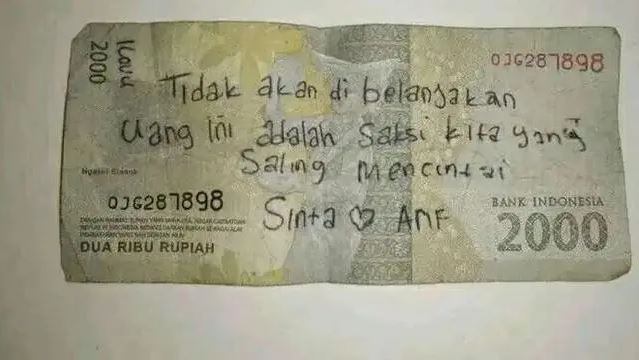 Kami
2000
OJG287898
Tidak akan di belanjakan
uang ini adalah saksi kita yang
saling mencintai
Ngarai Sianok
OJG287898
Sinta ♡ Anf
BANK INDONESIA
2000
DUA RIBU RUPIAH